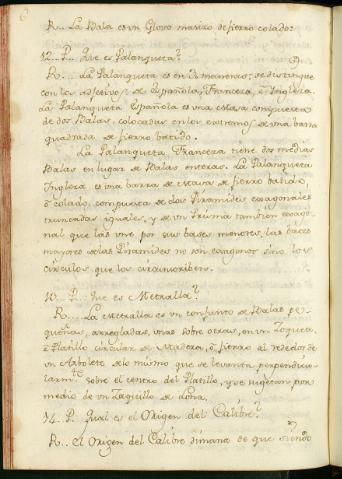 6
R... La Bala es un Glovo marizo de fierro colado.
12.. P.. Que es Palanqueta?
R... La Palanqueta es en 3 maneras; se distingue
con los adjetivos de Española, Francesa, é Inglesa.
La Palanqueta Española es una cosa compuesta
de dos Balas, colocadas en los extremos de una barra
quadrada de fierro batido.
La Palanqueta Francesa tiene dos medias
Balas en lugar de Balas enteras. La Palanqueta
Inglesa es una barra de estava de fierro batido,
ó colado, compuesta de dos Piramides exagonales
truncadas iguales, y de un Prisma tambien exago-
nal que las une por sus bases menores, las bases
mayores de las Piramides no son exagonos sino los
circulos que los circunscriben.
13.. P... Que es Metralla?
R.... La Metralla es un conjunto de Balas pe-
queñas, arregladas, unas sobre otras, en un Zoquete,
ó Platillo circular de Madera, ó fierro al rededor de
un Arbolete de lo mismo que se levanta perpendicu-
larmte. sobre el centro del Platillo, y se sugetan por
medio de un Saquillo de Lona.
14.. P. Qual es el Origen del Calibre?
R... El Origen del Calibre dimana de que siendo